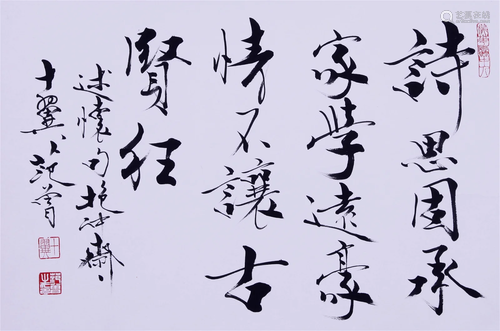 詩思固承
家學遠豪
情不讓古
賢狂
述懷句抱沖齋
十翼范曾